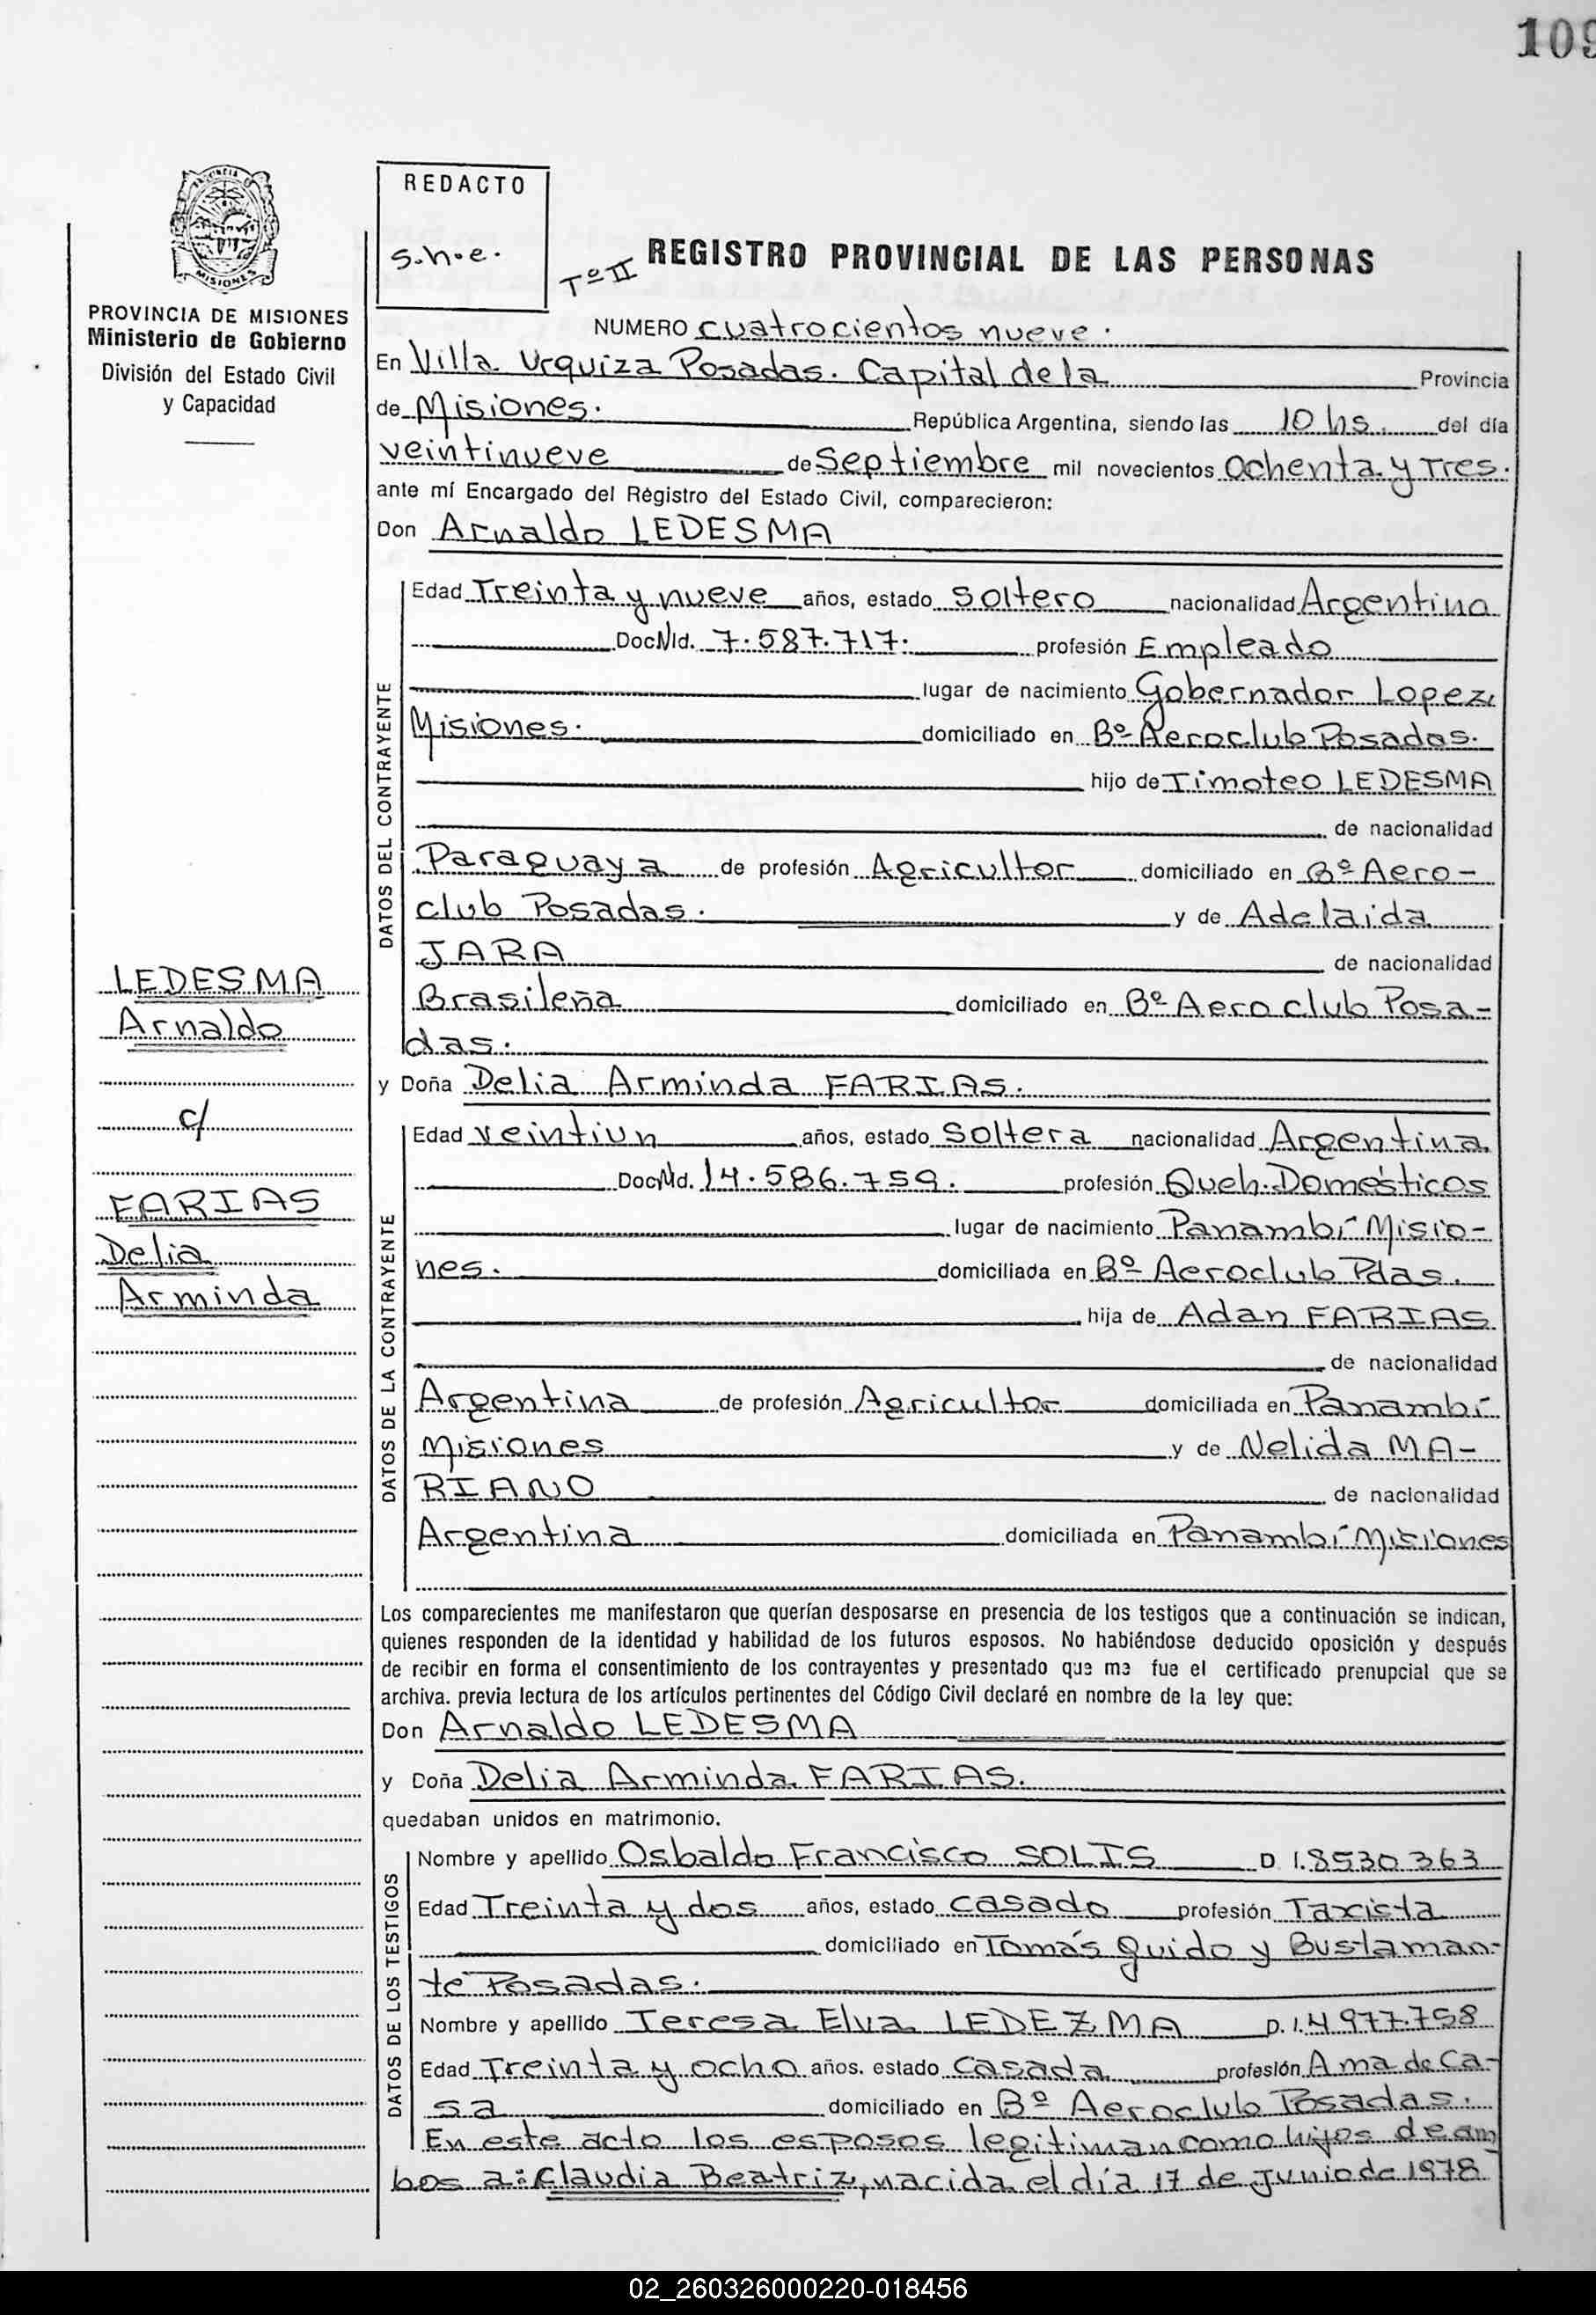 109
REDACTO
s.h.e.
Tº II
REGISTRO PROVINCIAL DE LAS PERSONAS
PROVINCIA DE MISIONES
Ministerio de Gobierno
División del Estado Civil
y Capacidad
NUMERO cuatrocientos nueve.
En Villa Urquiza Posadas. Capital de la Provincia
de Misiones. República Argentina, siendo las 10 hs. del día
veintinueve de Septiembre mil novecientos ochenta y Tres.
ante mí Encargado del Régistro del Estado Civil, comparecieron:
Don Arnaldo LEDESMA
DATOS DEL CONTRAYENTE
Edad Treinta y nueve años, estado soltero nacionalidad Argentina
Doc NId. 7.587.717. profesión Empleado
lugar de nacimiento Gobernador Lopez
Misiones. domiciliado en Bº Aeroclub Posadas.
hijo de Timoteo LEDESMA
de nacionalidad
Paraguaya de profesión Agricultor domiciliado en Bº Aero-
club Posadas. y de Adelaida
JARA de nacionalidad
Brasileña domiciliado en Bº Aero club Posa-
das.
LEDESMA
Arnaldo
c/
FARIAS
Delia
Arminda
y Doña Delia Arminda FARIAS.
DATOS DE LA CONTRAYENTE
Edad veintiun años, estado Soltera nacionalidad Argentina
Doc Nd. 14.586.759. profesión Queh. Domésticos
lugar de nacimiento Panambí Misio-
nes. domiciliada en Bº Aeroclub Pdas.
hija de Adan FARIAS
de nacionalidad
Argentina de profesión Agricultor domiciliada en Panambí
Misiones y de Nelida MA-
RIANO de nacionalidad
Argentina domiciliada en Panambí Misiones
Los comparecientes me manifestaron que querían desposarse en presencia de los testigos que a continuación se indican,
quienes responden de la identidad y habilidad de los futuros esposos. No habiéndose deducido oposición y después
de recibir en forma el consentimiento de los contrayentes y presentado que me fue el certificado prenupcial que se
archiva. previa lectura de los artículos pertinentes del Código Civil declaré en nombre de la ley que:
Don Arnaldo LEDESMA
y Doña Delia Arminda FARIAS.
quedaban unidos en matrimonio.
DATOS DE LOS TESTIGOS
Nombre y apellido Osbaldo Francisco SOLIS D.I. 8530363
Edad Treinta y dos años, estado casado profesión Taxista
domiciliado en Tomás Guido y Bustaman-
te Posadas.
Nombre y apellido Teresa Elva LEDEZMA D.I. 4977.758
Edad Treinta y ocho años. estado Casada profesión Ama de Ca-
sa domiciliado en Bº Aeroclub Posadas.
En este acto los esposos legitiman como hijos de am
bos a: Claudia Beatriz, nacida el día 17 de Junio de 1978
02_260326000220-018456